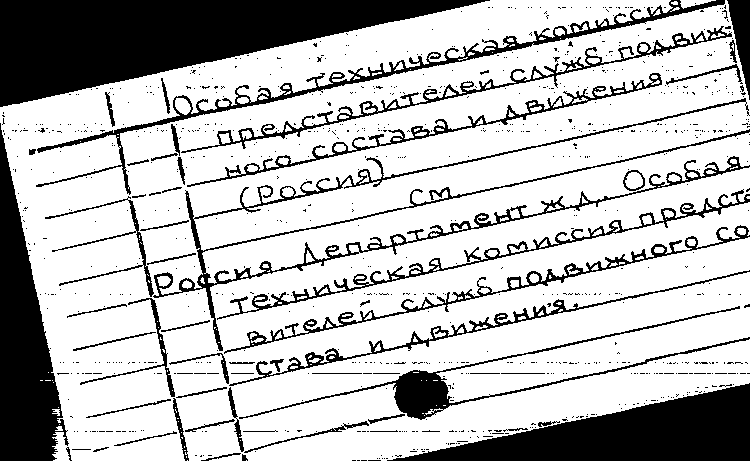 Особая техническая комиссия
представителей служб подвиж-
ного состава и движения.
(Россия).
См.
Россия. Департамент ж.д. Особая
техническая комиссия предста-
вителей служб подвижного со-
става и движения.